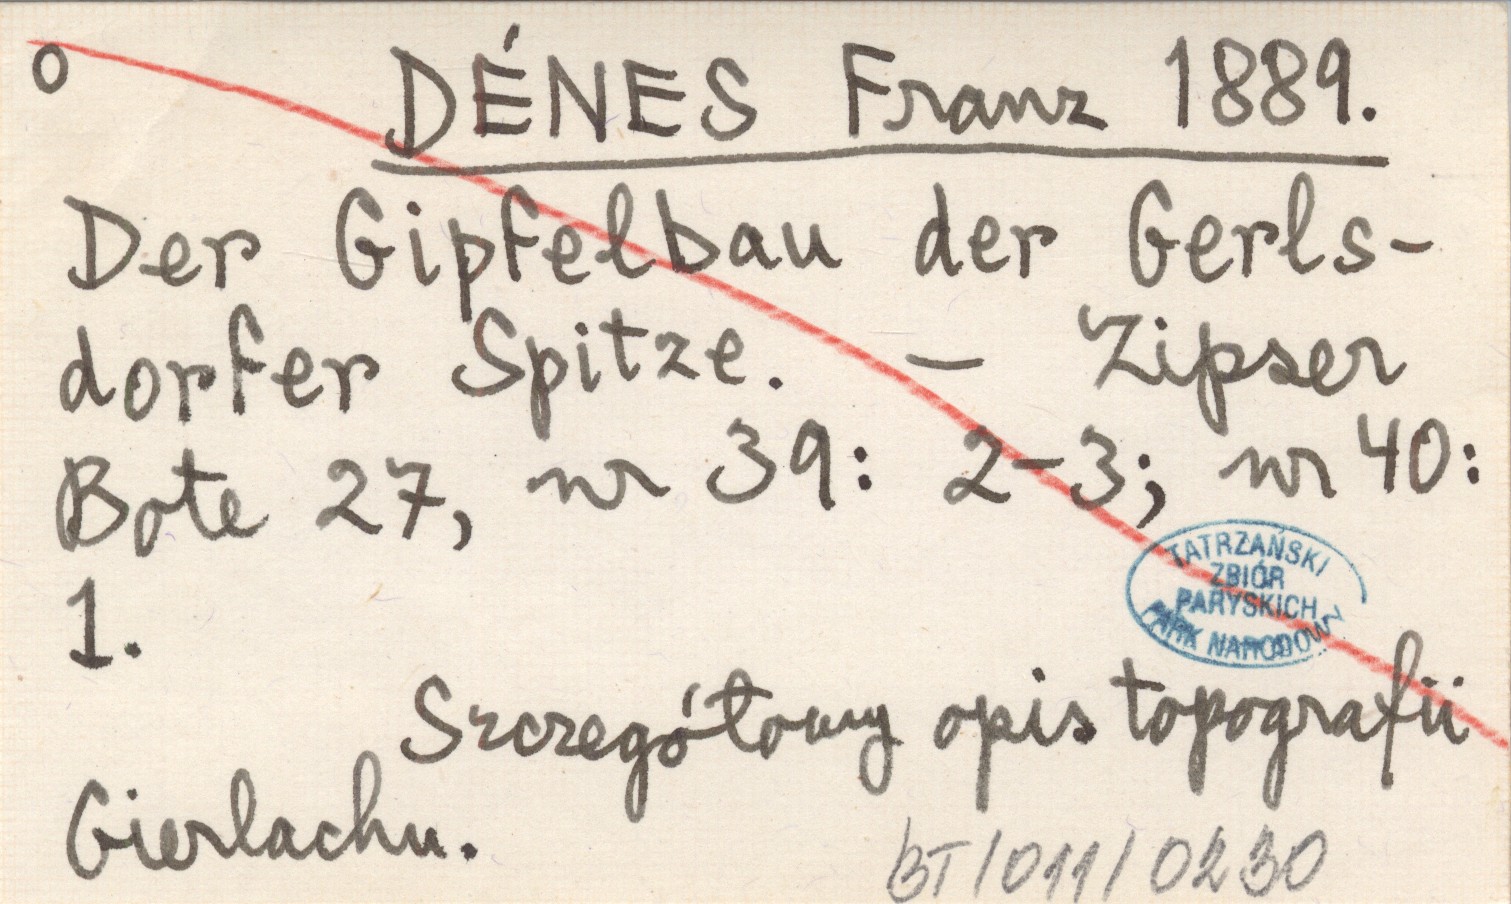 o DÉNES Franz 1889.
Der Gipfelbau der Gerls-
dorfer Spitze. – Zipser
Bote 27, nr 39: 2–3; nr 40:
1.
TATRZAŃSKI
ZBIÓR
PARYSKICH
PARK NARODOWY
Szczegółowy opis topografii
Gierlachu.
BT/011/0230